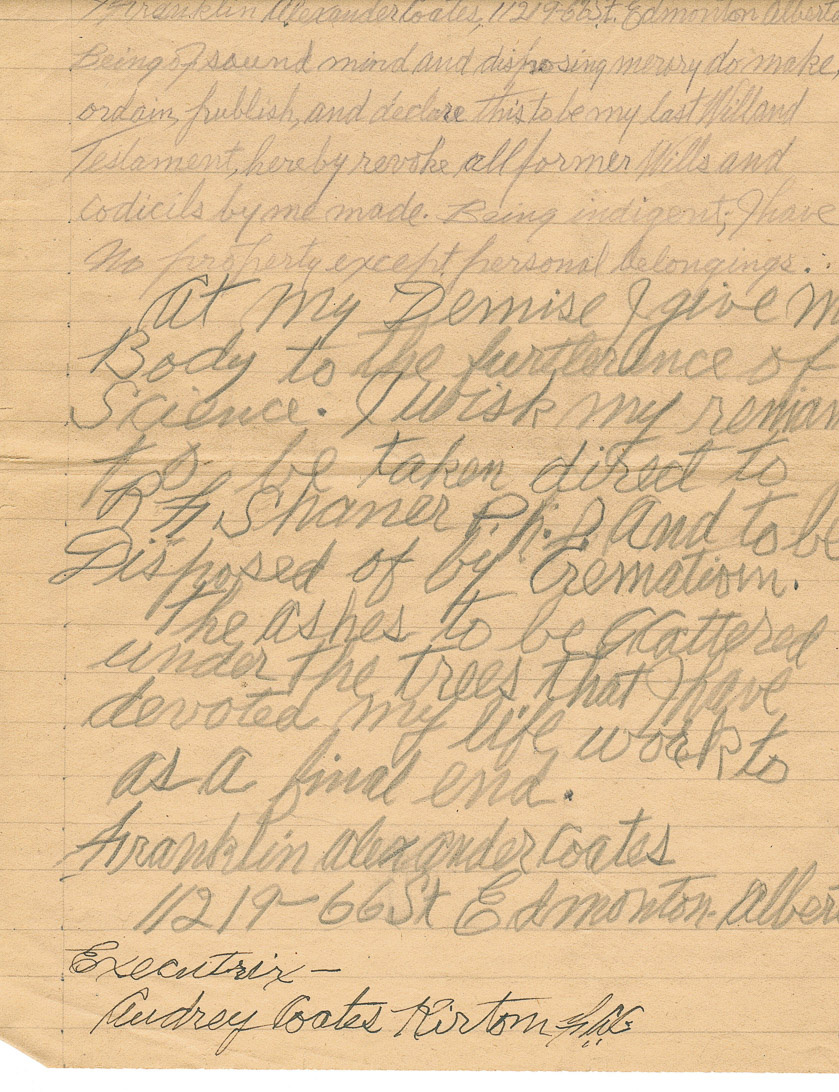 Franklin Alexander Coates, 11219-66St. Edmonton Alberta
Being of sound mind and disposing memory do make
ordain, publish, and declare this to be my last Will and
Testament, hereby revoke all former Wills and
Codicils by me made. Being indigent; I have
No property except personal belongings..
At my Demise I give M
Body to the furtherence of
Science. I wish my remian
to be taken direct to
R F Shaner Ph. D and to be
Disposed of by Crematiom.
The Ashes to be Scattered
under the trees that I have
devoted my life work to
as a final end.
Franklin Alexander Coates
11219-66St Edmonton. Alber
Executrix-
Audrey Coates Kirtom